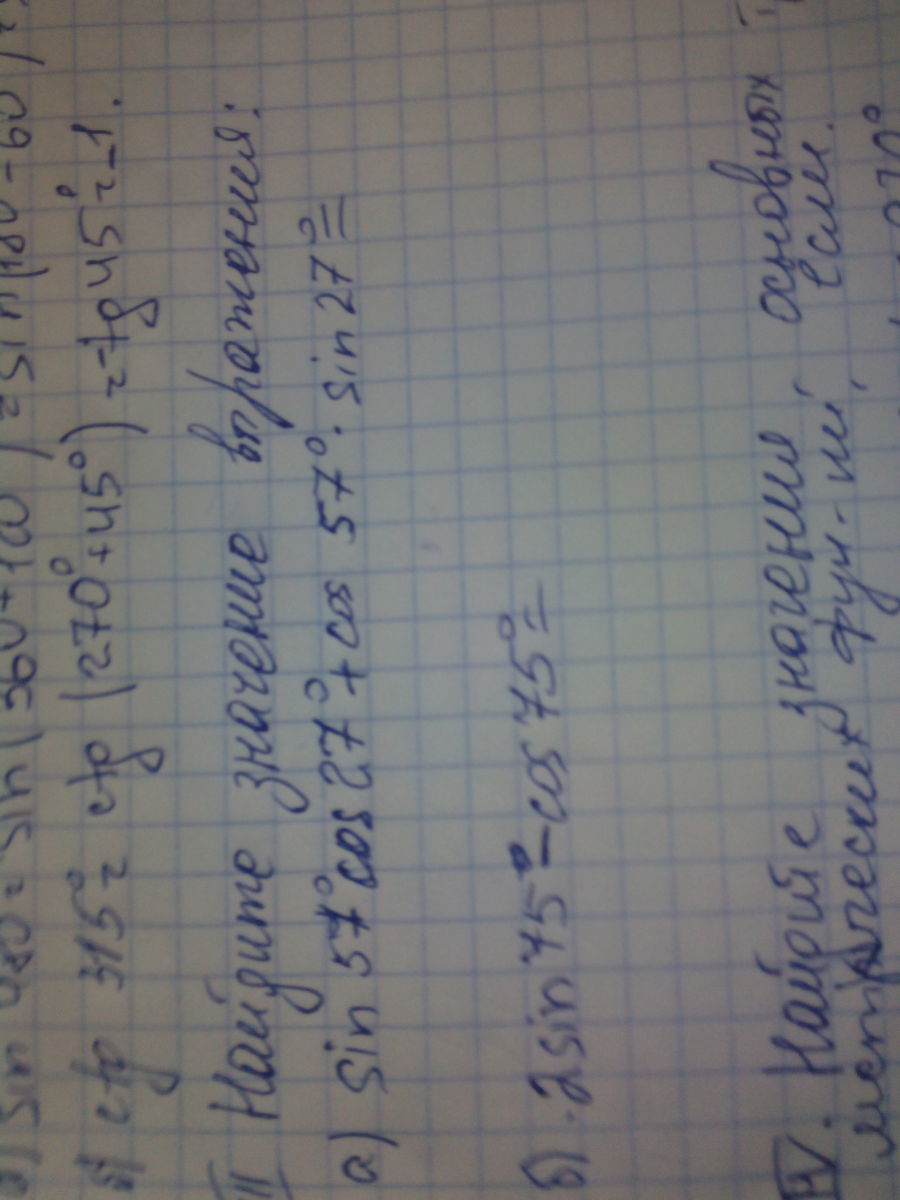 sin 480 = sin (360 + 120°) = sin (180 - 60)
ctg 315° = ctg (270° + 45°) = -tg 45° = -1.
II Найдите значение выражения:
а) sin 57° cos 27° + cos 57° · sin 27° =
б) · 2 sin 75° - cos 75° =
IV. Найдите значения, основных
фун-ий, если.
270°